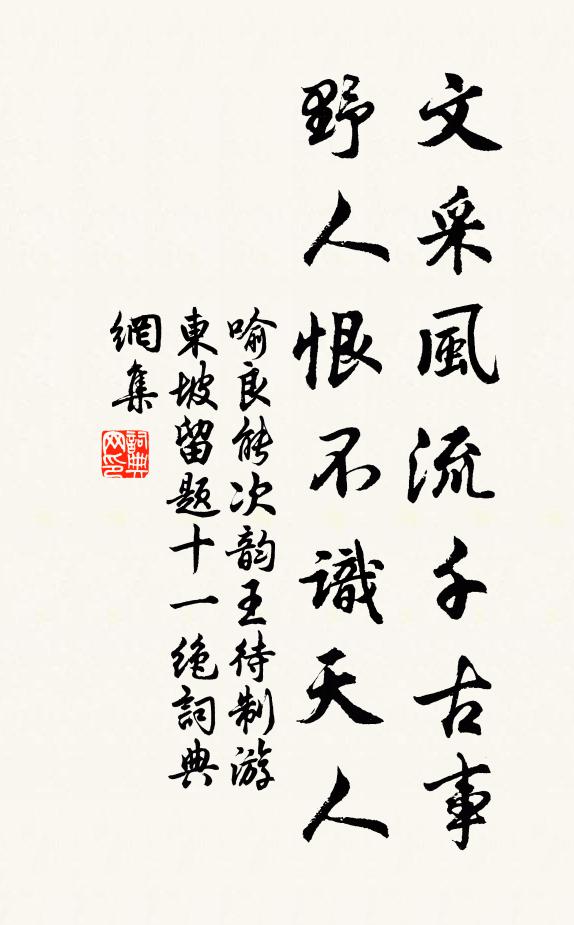 文采風流千古事
野人恨不識天人
喻良能次韵王待制游
東坡留題十一绝詞典
網集
詞典网印